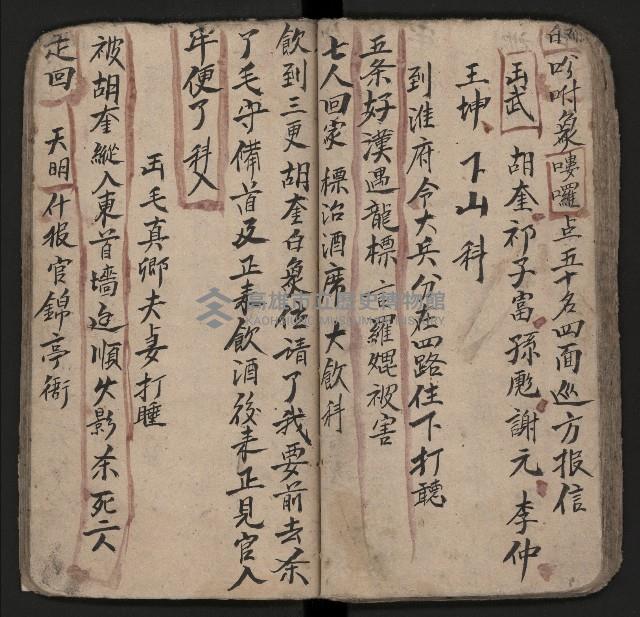 白 吩咐众嘍囉点五十名四面巡方报信
武 胡奎祁子富孫彪謝元 李仲
王坤 下山 科
到淮府令大兵分在四路住下打聽
五条好漢遇龍標 羅焜被害
七人回家 標治酒席 大飲科
飲到三更 胡奎白众位請了我要前去杀
了毛守備首及正未飲酒後来正見官入
牢便了 科入
毛真卿夫妻打睡
被胡奎縱入東首墻边順火影杀死二人
走回 天明什报官錦亭衙
高雄市立歷史博物館
KAOHSIUNG MUSEUM OF HISTORY